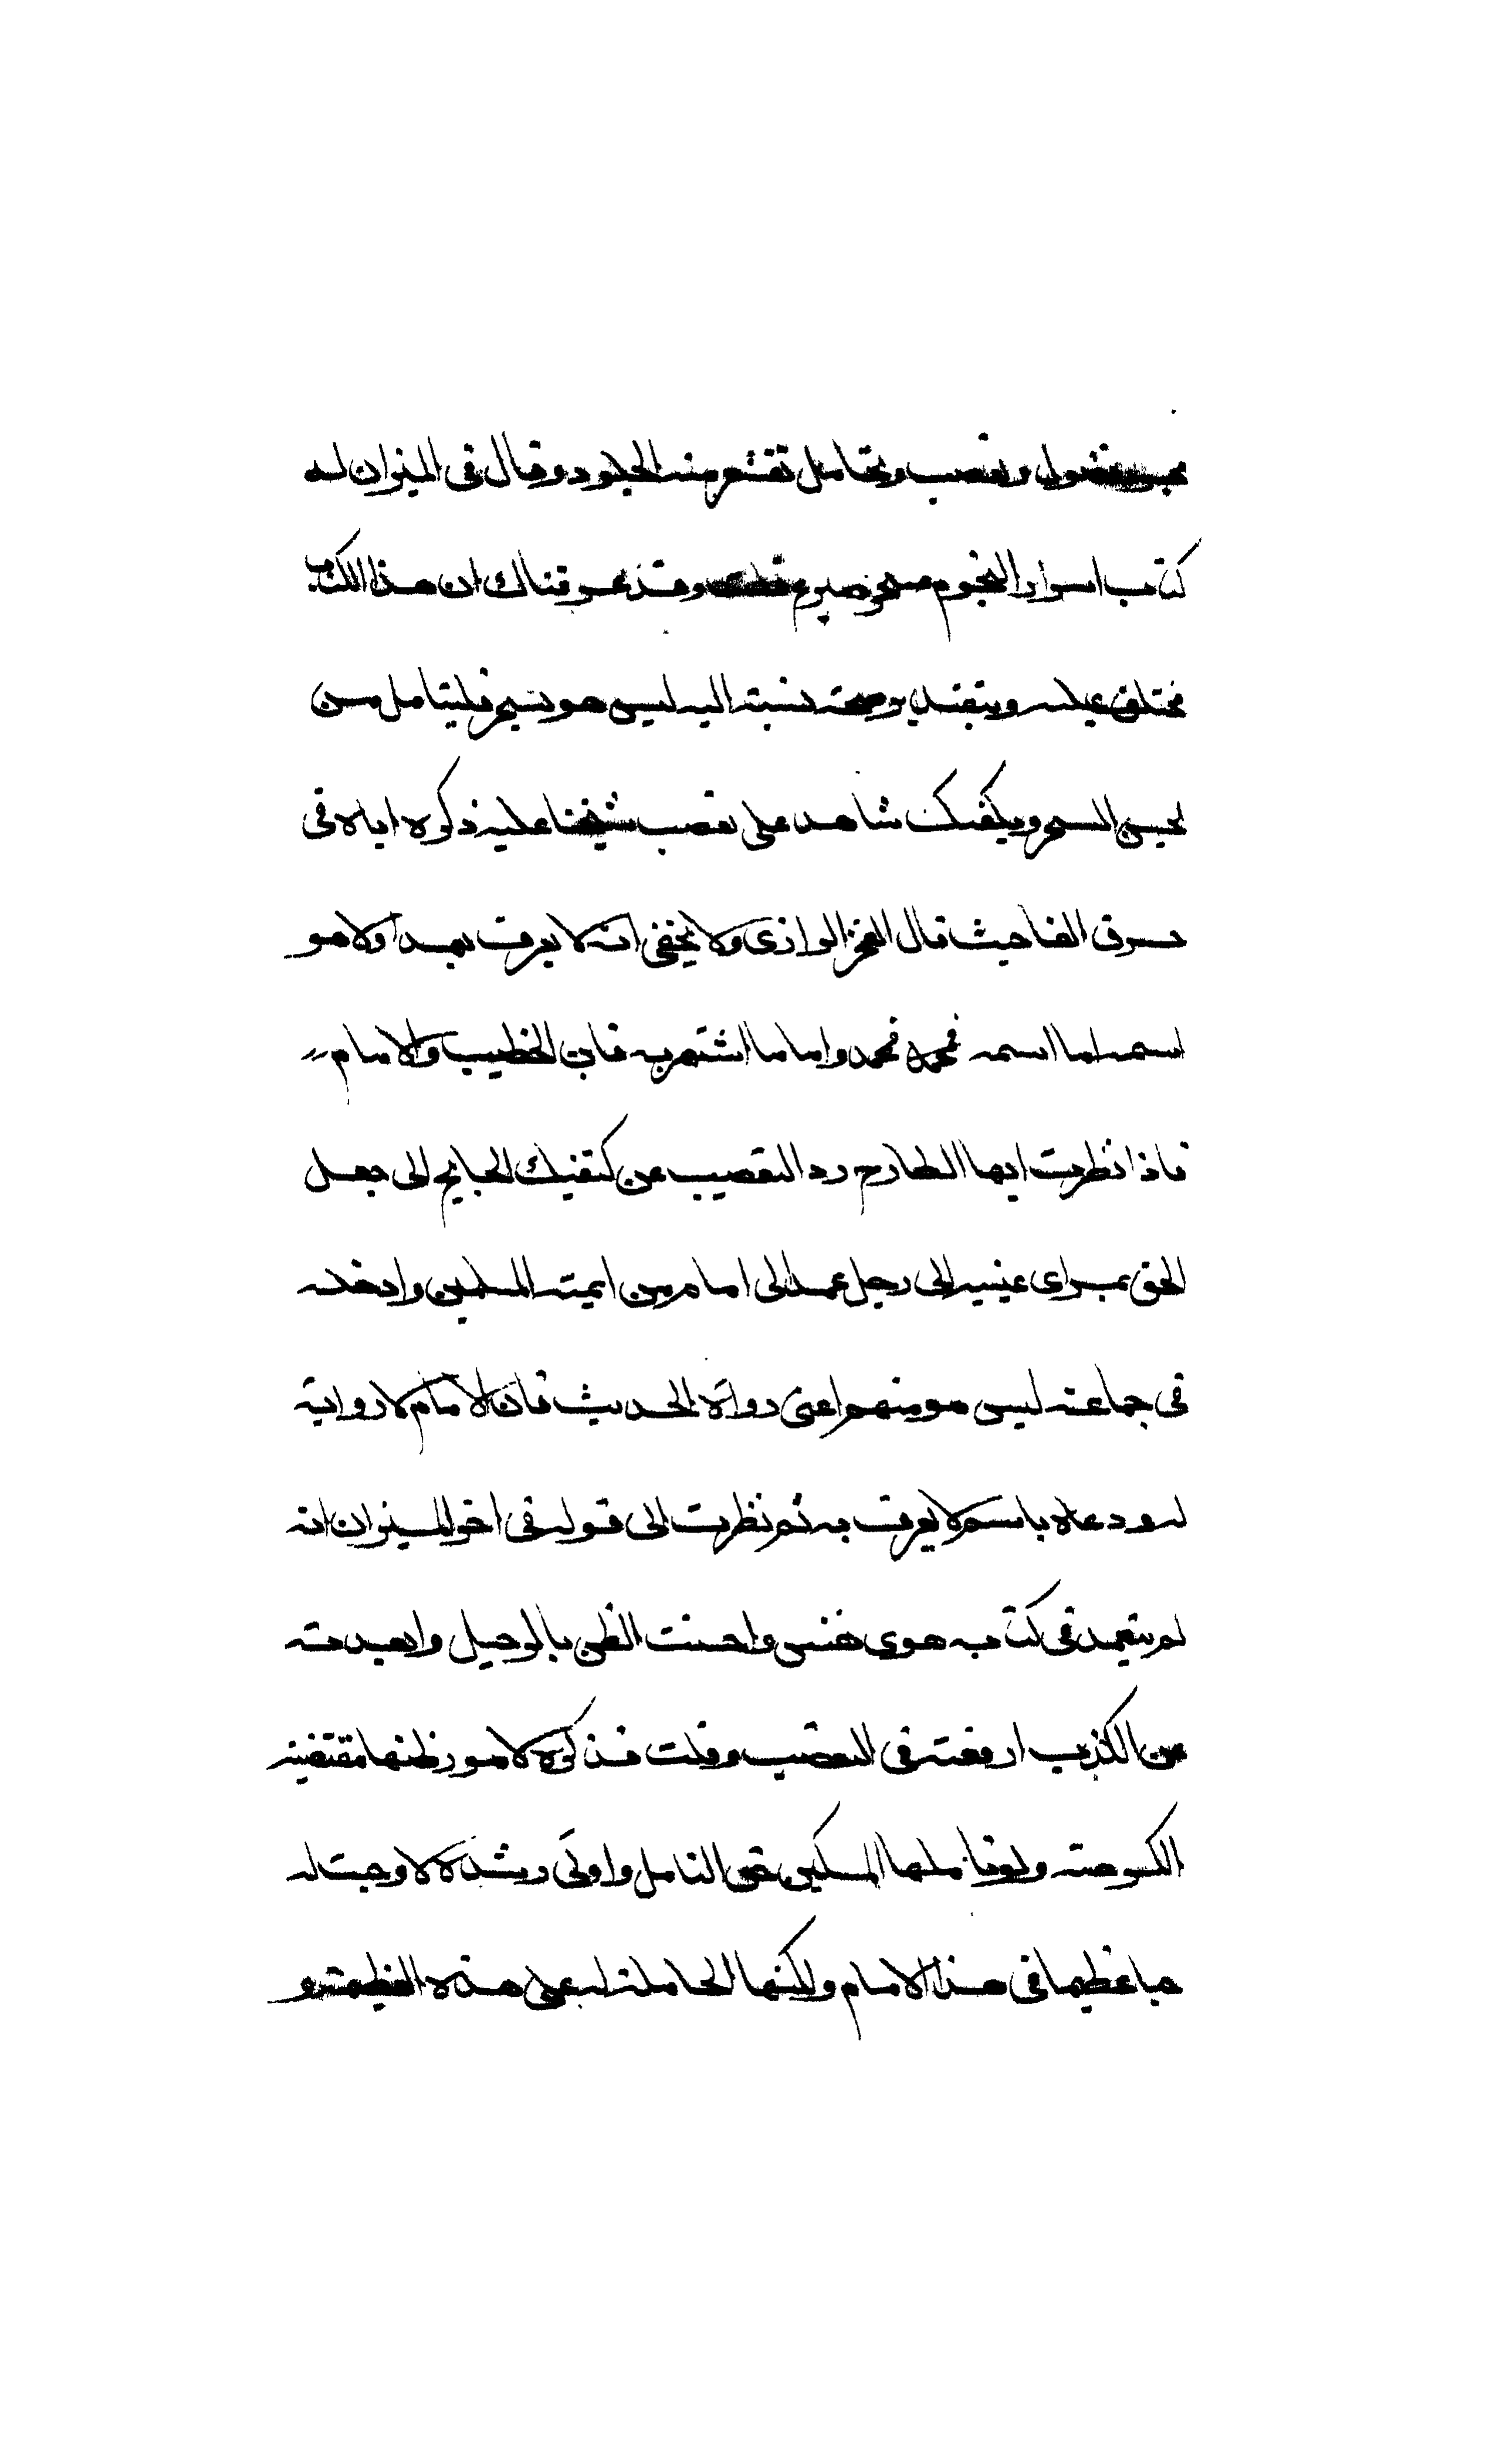 مجرد فضول وتعصب وتحامل تقشعر منه الجلود وقال في الميزان له
كتاب اسرار النجوم سحر صريح قلت وقد عرفناك ان هذا الكتاب
مختلق عليه وبتقدير صحته نسبته اليه ليس هو بسحر فليتامل من
يحسن السحر ويكفيك شاهد على تعصب شيخنا عليه ذكره اياه في
حرف الفا حيث قال الفخر الرازي ولا يخفى انه لا يعرف بهذا ولا هو
اسمه اما اسمه فمحمد واما ما اشتهر به فابن الخطيب والامام
فاذا نظرت ايها الطارح ردا التعصب عن كتفيك الجانح الى جعل
الحق بمراى عينيه الى رجل عمد الى امام من ايمة المسلمين وادخله
في جماعة ليس هو منهم اعنى رواة الحديث فان الامام لا رواية
له ودعاه باسم لا يعرف به ثم نظرت الى قوله في اخر الميزان انه
لم يتعمد في كتابه هوى نفس واحسنت الظن بالرجل وابعدته
من الكذب اوقعته في التعصب وقلت قد كرهه لامور ظنها مقتضية
الكراهة ولو تاملها المسكين حق التامل واوتي رشده لاوجبت له
حبا عظيما في هذا الامام ولكنها الحاملة له على هذه العظيمة و